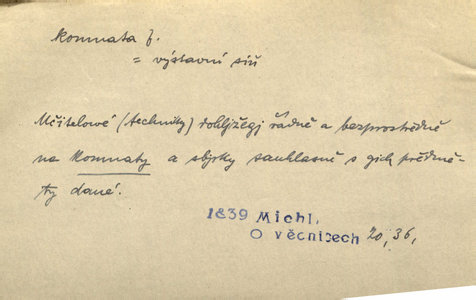 komnata f.
= výstavní síň
Učitelové (techniky) dohljžegj řádně a bezprostředně
na komnaty a sbjrky sauhlasně s gich předmě-
ty dané.
1839 Michl.
O věcnicech 20, 36,